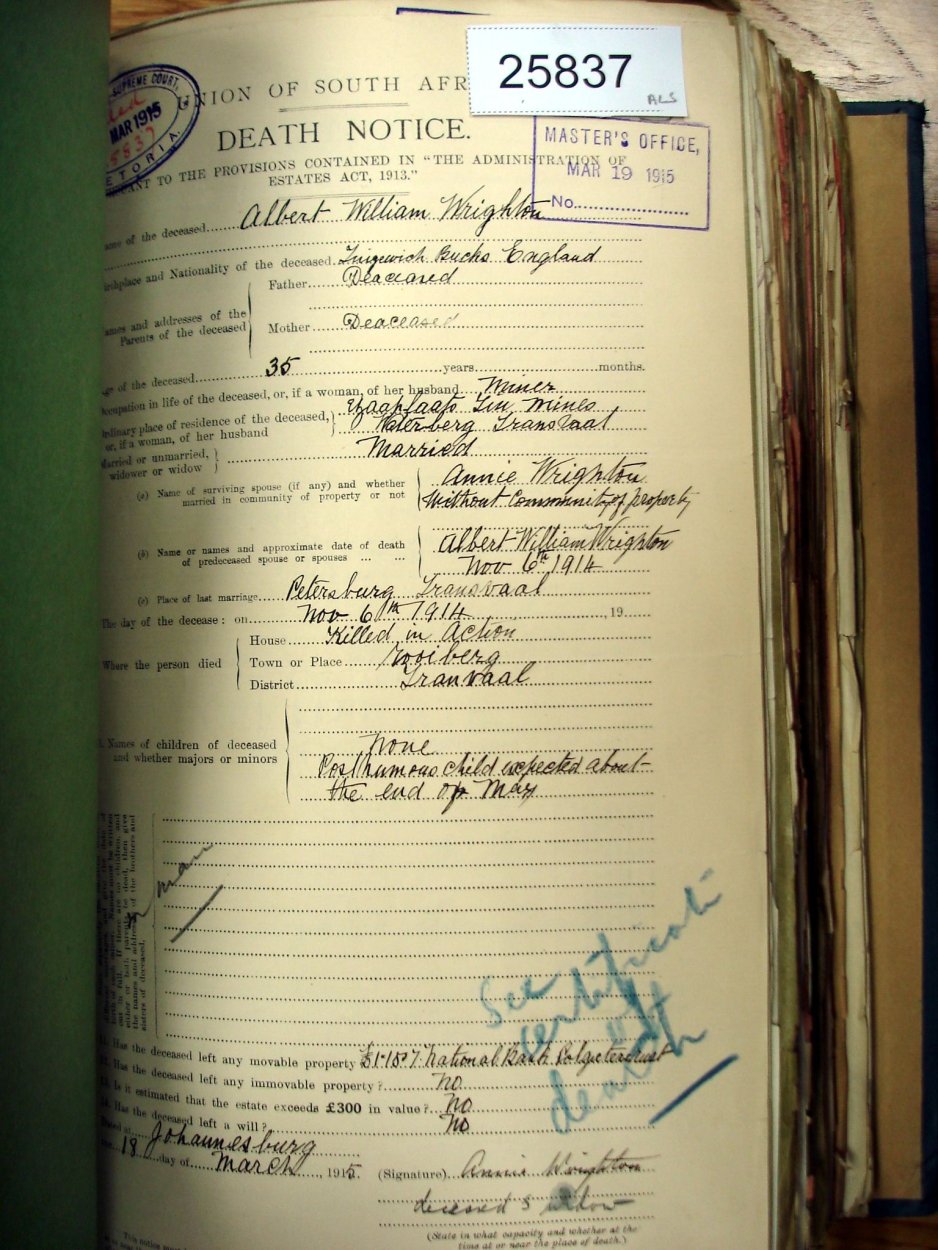 25837
ALS
SUPREME COURT,
MAR 1915
25837
PRETORIA
UNION OF SOUTH AFR
DEATH NOTICE.
MASTER'S OFFICE,
MAR 19 1915
No.
ANT TO THE PROVISIONS CONTAINED IN "THE ADMINISTRATION OF
ESTATES ACT, 1913."
ame of the deceased Albert William Wrighton
irthplace and Nationality of the deceased Bucks England
Father Deaceased
ames and addresses of the
Parents of the deceased
Mother Deaceased
ge of the deceased 35 years months.
ccupation in life of the deceased, or, if a woman, of her husband Miner
rdinary place of residence of the deceased, Tin Mines
or, if a woman, of her husband Waterberg Transvaal
arried or unmarried, Married
widower or widow
(a) Name of surviving spouse (if any) and whether Annie Wrighton
married in community of property or not Without Community of property
(b) Name or names and approximate date of death Albert William Wrighton
of predeceased spouse or spouses ... ... Nov 6th 1914
(c) Place of last marriage Petersburg Transvaal
The day of the decease : on Nov 6th 1914 , 19
House Killed in Action
Where the person died Town or Place Rooiberg
District Tranvaal
Names of children of deceased None
and whether majors or minors Posthumous child expected about
the end of May
out in full. If there are no children, and
either or both parents be dead, then give
the names and addresses of the brothers and
sisters of deceased.
See
certificate
of
death
Has the deceased left any movable property National Bank
Has the deceased left any immovable property ? No
Is it estimated that the estate exceeds £300 in value ? No
Has the deceased left a will ? No
Dated at Johannesburg
18 day of March , 1915. (Signature) Annie Wrighton
deceased's widow
(State in what capacity and whether at the
time at or near the place of death.)
This notice